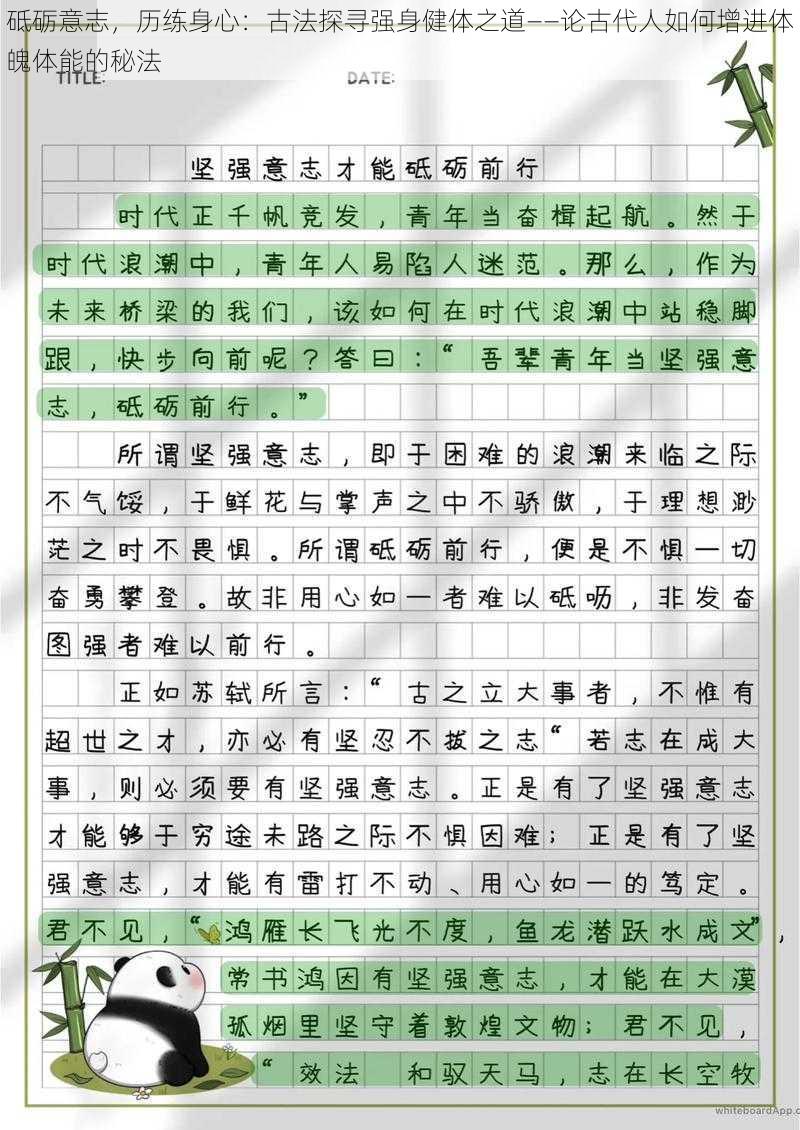 砥砺意志，历练身心：古法探寻强身健体之道——论古代人如何增进体
魄体能的秘法
TITLE:
DATE:
坚强意志才能砥砺前行
时代正千帆竞发，青年当奋楫起航。然于
时代浪潮中，青年人易陷人迷范。那么，作为
未来桥梁的我们，该如何在时代浪潮中站稳脚
跟，快步向前呢？答曰：“吾辈青年当坚强意
志，砥砺前行。”
所谓坚强意志，即于困难的浪潮来临之际
不气馁，于鲜花与掌声之中不骄傲，于理想渺
茫之时不畏惧。所谓砥砺前行，便是不惧一切
奋勇攀登。故非用心如一者难以砥呖，非发奋
图强者难以前行。
正如苏轼所言：“古之立大事者，不惟有
超世之才，亦必有坚忍不拔之志“若志在成大
事，则必须要有坚强意志。正是有了坚强意志
才能够于穷途未路之际不惧因难；正是有了坚
强意志，才能有雷打不动、用心如一的笃定。
君不见，“鸿雁长飞光不度，鱼龙潜跃水成文”，
常书鸿因有坚强意志，才能在大漠
孤烟里坚守着敦煌文物；君不见，
“效法 和驭天马，志在长空牧
whiteboardApp.c